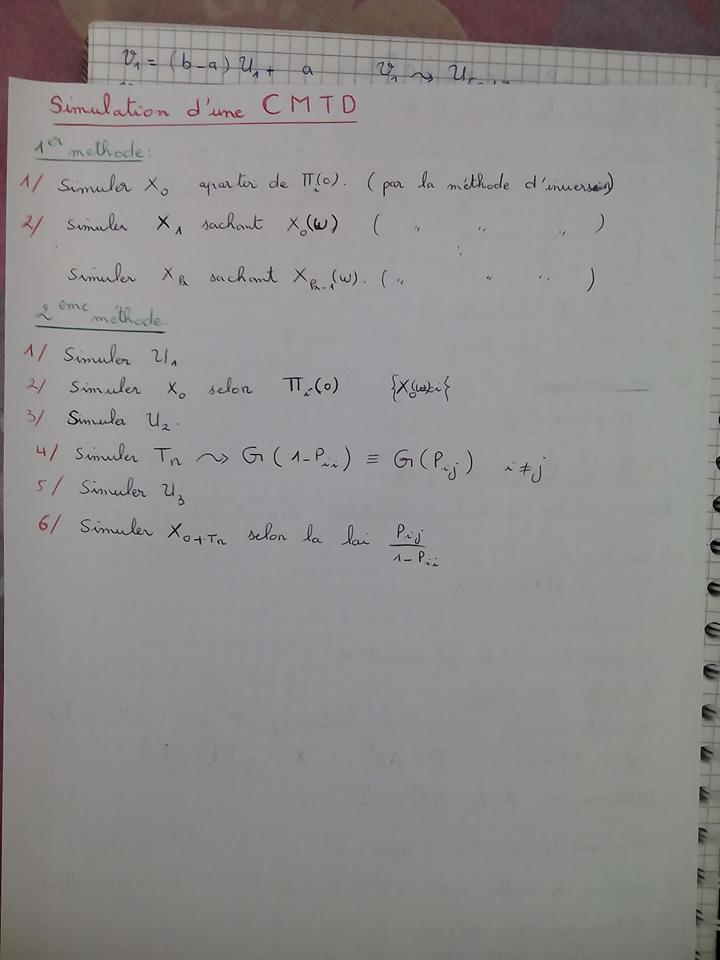 V₁ = (b-a) U₁ + a V₁ ⤳
Simulation d'une CMTD
1er méthode:
1/ Simuler X₀ apartir de Πᵢ(0). (par la méthode d'inversion)
2/ Simuler X₁ sachant X₀(ω) ( " " " )
: :
Simuler Xₙ sachant Xₙ₋₁(ω). ( " " " )
2ème méthode.
1/ Simuler U₁
2/ Simuler X₀ selon Πᵢ(0) {X₀(ω)=i}
3/ Simula U₂.
4/ Simuler Tₙ ⤳ G(1-Pᵢᵢ) ≡ G(Pᵢⱼ) i≠j
5/ Simuler U₃
6/ Simuler X₀₊Tₙ selon la lai Pᵢⱼ / 1-Pᵢᵢ